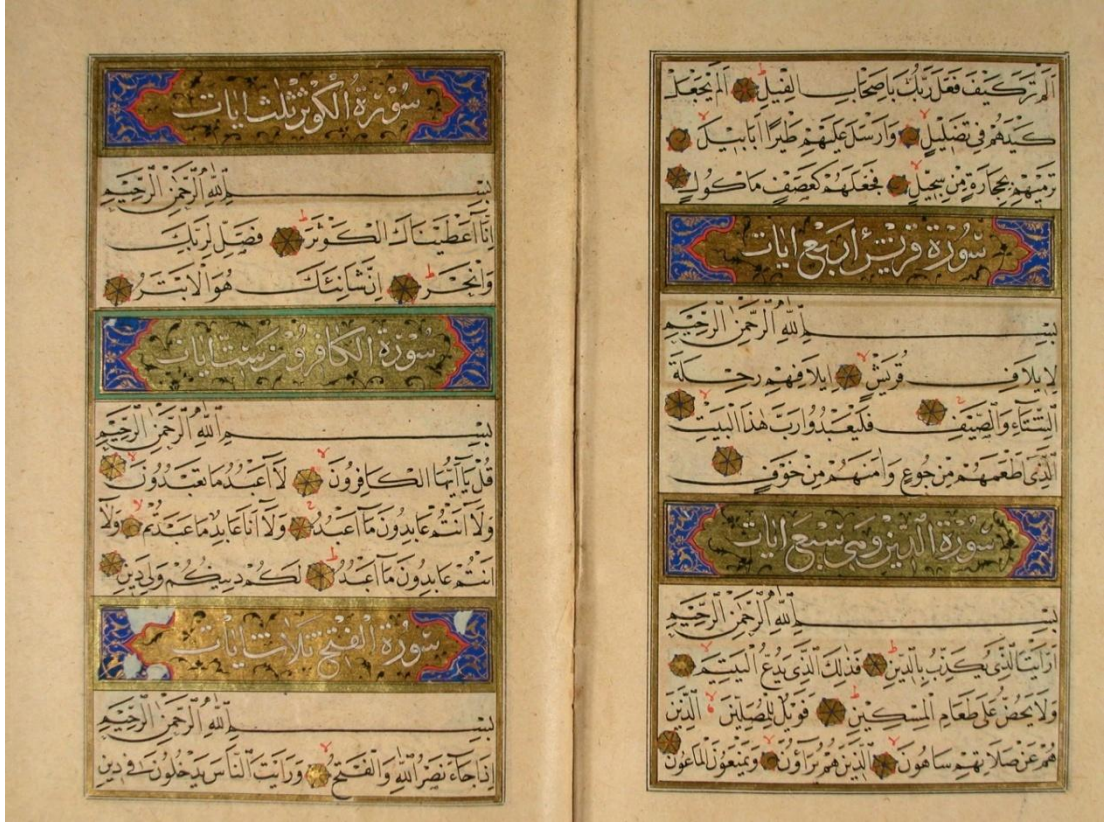 اَلَمْ تَرَ كَيْفَ فَعَلَ رَبُّكَ بِاَصْحَابِ الْفِيلِ اَلَمْ يَجْعَلْ
كَيْدَهُمْ فِي تَضْلِيلٍ وَاَرْسَلَ عَلَيْهِمْ طَيْرًا اَبَابِيلَ
تَرْمِيهِمْ بِحِجَارَةٍ مِنْ سِجِّيلٍ فَجَعَلَهُمْ كَعَصْفٍ مَاْكُولٍ
سُورَةُ قُرَيْشٍ اَرْبَعُ اٰيَات
بِسْمِ اللّٰهِ الرَّحْمٰنِ الرَّحِيمِ
لِاِيلَافِ قُرَيْشٍ اِيلَافِهِمْ رِحْلَةَ
الشِّتَاۤءِ وَالصَّيْفِ فَلْيَعْبُدُوا رَبَّ هٰذَا الْبَيْتِ
الَّذِي اَطْعَمَهُمْ مِنْ جُوعٍ وَاٰمَنَهُمْ مِنْ خَوْفٍ
سُورَةُ الدِّينِ وَهِيَ سَبْعُ اٰيَات
بِسْمِ اللّٰهِ الرَّحْمٰنِ الرَّحِيمِ
اَرَاَيْتَ الَّذِي يُكَذِّبُ بِالدِّينِ فَذٰلِكَ الَّذِي يَدُعُّ الْيَتِيمَ
وَلَا يَحُضُّ عَلٰى طَعَامِ الْمِسْكِينِ فَوَيْلٌ لِلْمُصَلِّينَ الَّذِينَ
هُمْ عَنْ صَلَاتِهِمْ سَاهُونَ الَّذِينَ هُمْ يُرَاۤؤُنَ وَيَمْنَعُونَ الْمَاعُونَ
سُورَةُ الْكَوْثَرِ ثَلٰثُ اٰيَات
بِسْمِ اللّٰهِ الرَّحْمٰنِ الرَّحِيمِ
اِنَّا اَعْطَيْنَاكَ الْكَوْثَرَ فَصَلِّ لِرَبِّكَ
وَانْحَرْ اِنَّ شَانِئَكَ هُوَ الْاَبْتَرُ
سُورَةُ الْكَافِرُونَ سِتُّ اٰيَات
بِسْمِ اللّٰهِ الرَّحْمٰنِ الرَّحِيمِ
قُلْ يَاۤ اَيُّهَا الْكَافِرُونَ لَاۤ اَعْبُدُ مَا تَعْبُدُونَ
وَلَاۤ اَنْتُمْ عَابِدُونَ مَاۤ اَعْبُدُ وَلَاۤ اَنَا عَابِدٌ مَا عَبَدْتُمْ وَلَاۤ
اَنْتُمْ عَابِدُونَ مَاۤ اَعْبُدُ لَكُمْ دِينُكُمْ وَلِيَ دِينِ
سُورَةُ الْفَتْحِ ثَلَاثُ اٰيَات
بِسْمِ اللّٰهِ الرَّحْمٰنِ الرَّحِيمِ
اِذَا جَاۤءَ نَصْرُ اللّٰهِ وَالْفَتْحُ وَرَاَيْتَ النَّاسَ يَدْخُلُونَ فِي دِينِ